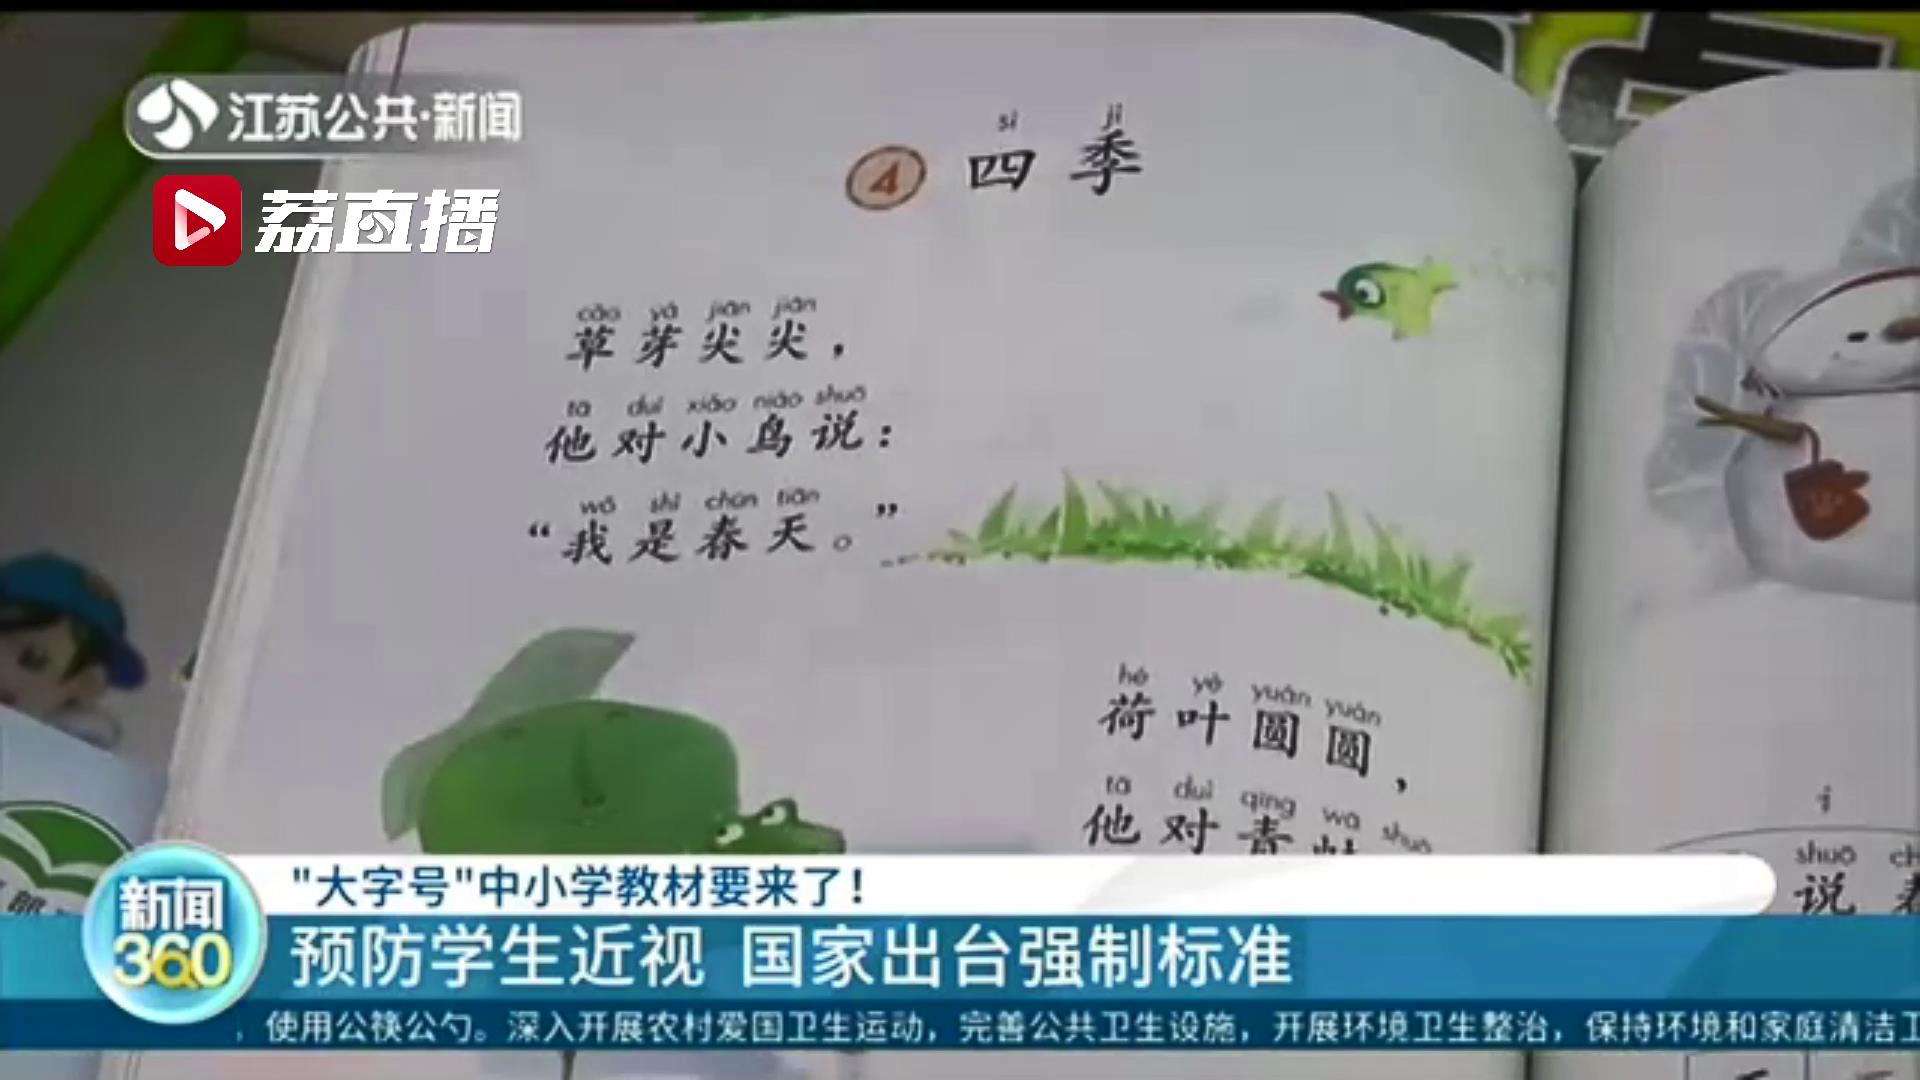 江苏公共·新闻
荔直播
sì jì
4 四季
cǎo yá jiān jiān
草芽尖尖，
tā duì xiǎo niǎo shuō
他对小鸟说：
wǒ shì chūn tiān
“我是春天。”
hé yè yuán yuán
荷叶圆圆，
tā duì qīng wā shuō
他对青蛙
shuō
说
"大字号"中小学教材要来了！
新闻
360
预防学生近视 国家出台强制标准
，使用公筷公勺。深入开展农村爱国卫生运动，完善公共卫生设施，开展环境卫生整治，保持环境和家庭清洁卫